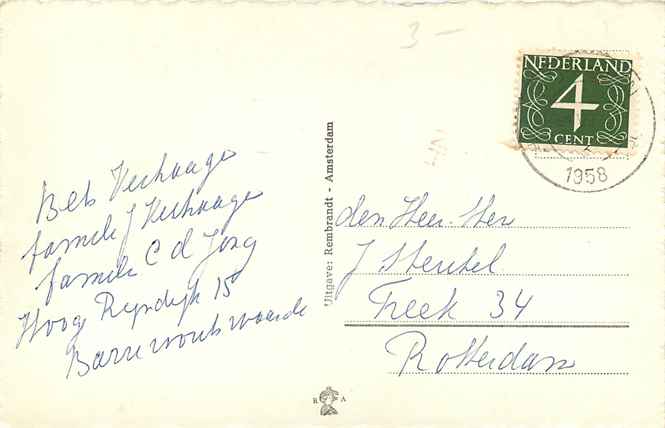 3-
NEDERLAND
4
CENT
1958
Bets Verhaage
familie J Verhaage
familie C d Jong
Hoog Rijndijk 15
Uitgave: Rembrandt - Amsterdam
den Heer
J
34
Rotterdam
R A